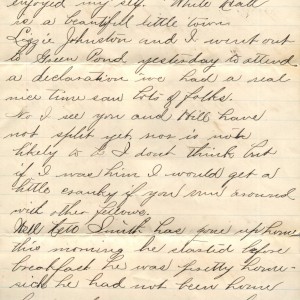 enjoyed my self. White Hall
is a beautiful little town
Lizzie Johnston and I went out
to Green Pond yesterday to attend
a declaration we had a real
nice time saw lots of folks.
No I see you and Will have
not split yet nor is not
likely to I dont think, but
if I was him I would get a
little cranky if you run around
with other fellows.
Well Smith has gone up home
this morning he started before
breakfast he was pretty home-
sick he had not been home